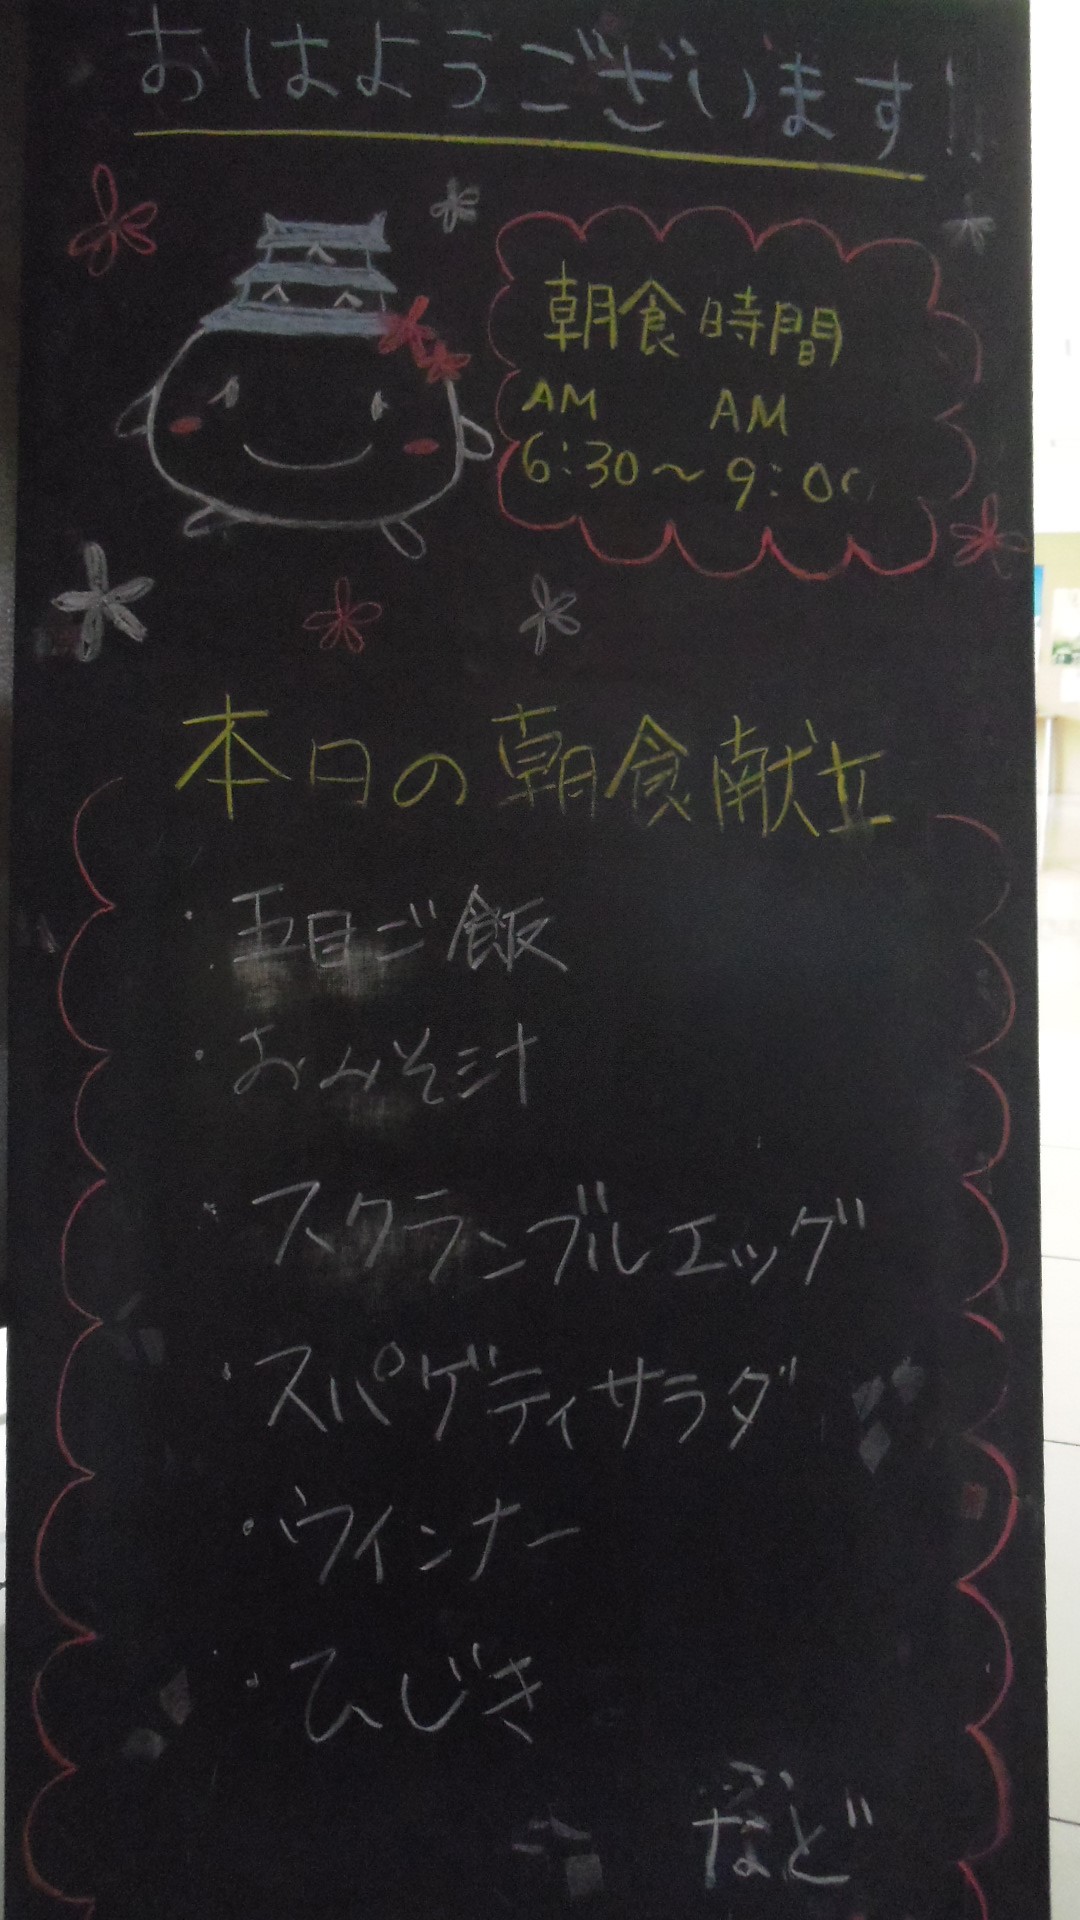 おはようございます!!
朝食時間
AM AM
6:30～9:00
本日の朝食献立
・五目ご飯
・おみそ汁
・スクランブルエッグ
・スパゲティサラダ
・ウインナー
・ひじき
など